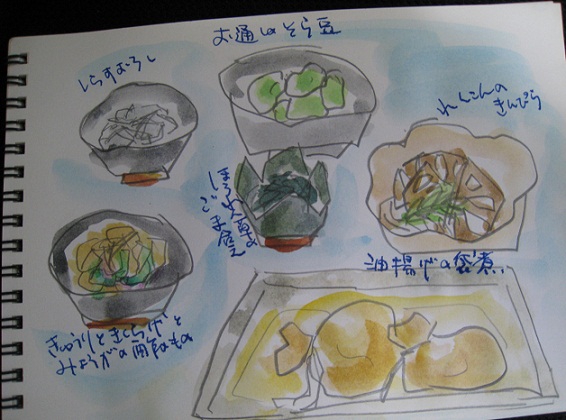 お通しのそら豆
しらすおろし
れんこんの
きんぴら
ほうれん草の
ごま和え
油揚げの袋煮
きゅうりときくらげと
みょうがの酢のもの